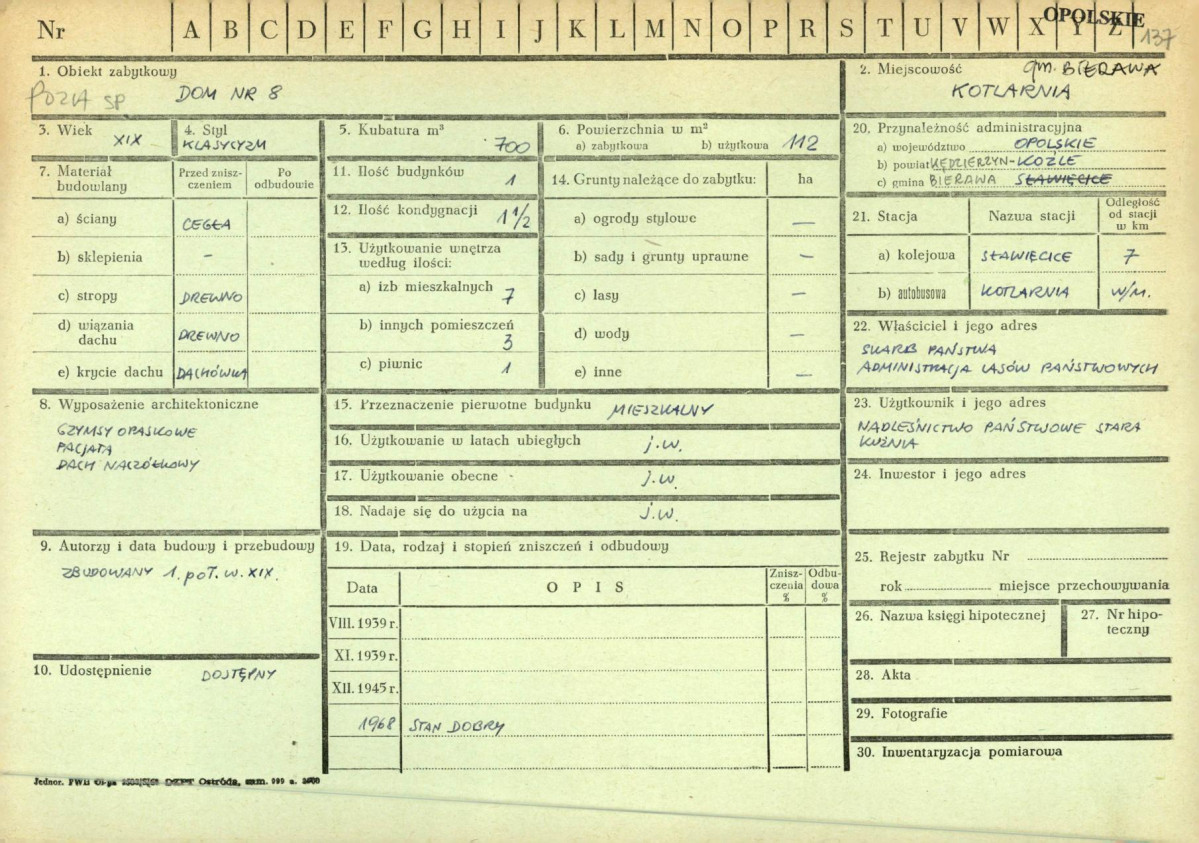 Nr A B C D E F G H I J K L M N O P R S T U V W X Y Z
OPOLSKIE
137
1. Obiekt zabytkowy
SP DOM NR 8
2. Miejscowość gm. BIERAWA
KOTLARNIA
3. Wiek XIX
4. Styl
KLASYCYZM
5. Kubatura m³ 700
6. Powierzchnia w m²
a) zabytkowa b) użytkowa 112
20. Przynależność administracyjna
a) województwo OPOLSKIE
b) powiat KĘDZIERZYN-KOŹLE
c) gmina BIERAWA SŁAWIĘCICE
7. Materiał budowlany
Przed zniszczeniem
Po odbudowie
a) ściany CEGŁA
b) sklepienia –
c) stropy DREWNO
d) wiązania dachu DREWNO
e) krycie dachu DACHÓWKA
11. Ilość budynków 1
12. Ilość kondygnacji 1 1/2
13. Użytkowanie wnętrza
według ilości:
a) izb mieszkalnych 7
b) innych pomieszczeń 3
c) piwnic 1
14. Grunty należące do zabytku: ha
a) ogrody stylowe —
b) sady i grunty uprawne —
c) lasy —
d) wody —
e) inne —
21. Stacja
Nazwa stacji
Odległość od stacji w km
a) kolejowa SŁAWIĘCICE 7
b) autobusowa KOTLARNIA W/M.
22. Właściciel i jego adres
SKARB PAŃSTWA
ADMINISTRACJA LASÓW PAŃSTWOWYCH
8. Wyposażenie architektoniczne
GZYMSY OPASKOWE
FACJATA
DACH NACZÓŁKOWY
15. Przeznaczenie pierwotne budynku MIESZKALNY
16. Użytkowanie w latach ubiegłych j.w.
17. Użytkowanie obecne j.w.
18. Nadaje się do użycia na j.w.
23. Użytkownik i jego adres
NADLEŚNICTWO PAŃSTWOWE STARA
KUŹNIA
24. Inwestor i jego adres
9. Autorzy i data budowy i przebudowy
ZBUDOWANY 1. poł. w. XIX.
10. Udostępnienie DOSTĘPNY
19. Data, rodzaj i stopień zniszczeń i odbudowy
Data
OPIS
Zniszczenia %
Odbudowa %
VIII. 1939 r.
XI. 1939 r.
XII. 1945 r.
1968 STAN DOBRY
25. Rejestr zabytku Nr
rok miejsce przechowywania
26. Nazwa księgi hipotecznej
27. Nr hipoteczny
28. Akta
29. Fotografie
30. Inwentaryzacja pomiarowa
Jednor. PWB Ostróda, zam. 999 n.